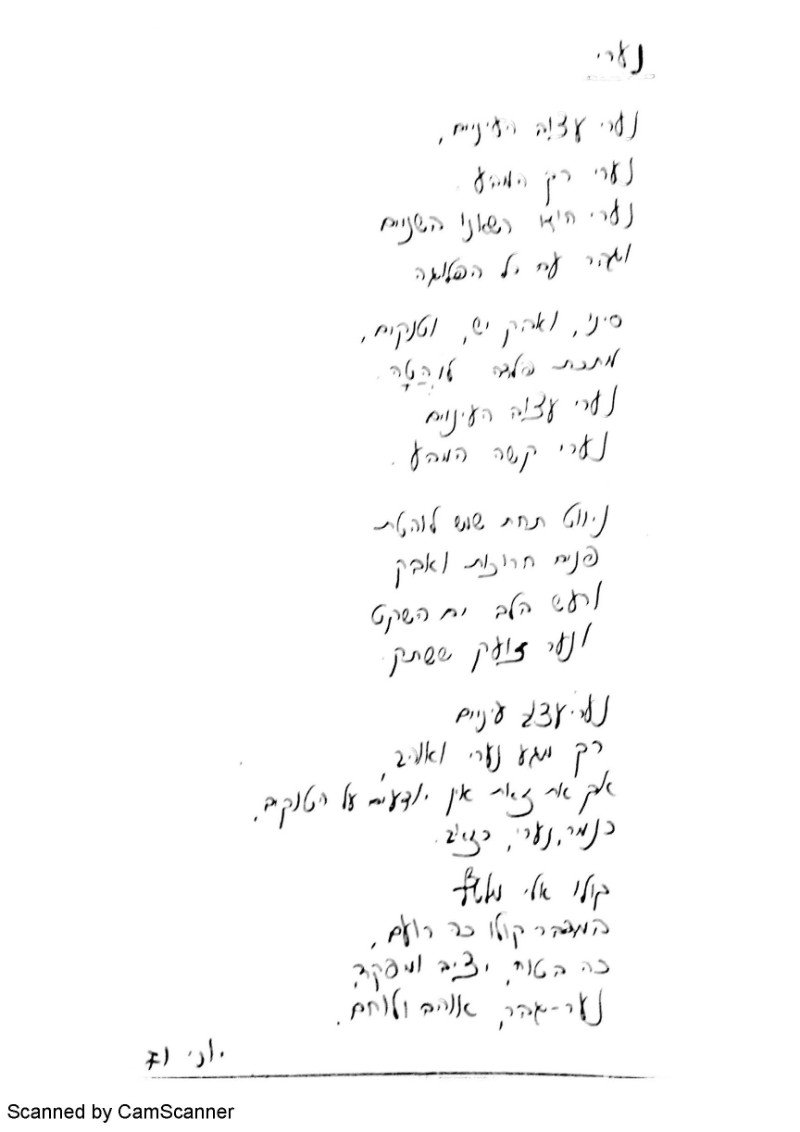 נערי
נערי עצוב העיניים,
נערי רק המגע.
נערי חיוך השניים
וגבר עם כל הפלוגה
סיני, ואבק יש, וטנקים,
מתכת פלדה לוֹהֵטָה.
נערי עצוב העיניים
נערי קשה המגע.
ניווט תחת שמש לוהטת
פנים חרוכות ואבק
ורעש הלב ים השקט
ונער צועק ששתק.
נער-עצוב עיניים
רק מגע נערי ואהוב,
אך את זאת אין יודעים על הטנקים.
כנמר, נערי, כזאב.
קולו אלי
המדבר קולו כה רועם,
כה בטוח, יציב ומפקד,
נער-גבר, אוהב ולוחם.
יוני 71
Scanned by CamScanner